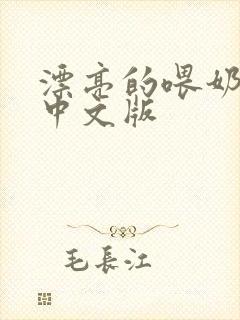 漂亮的喂奶
中文版
毛長江